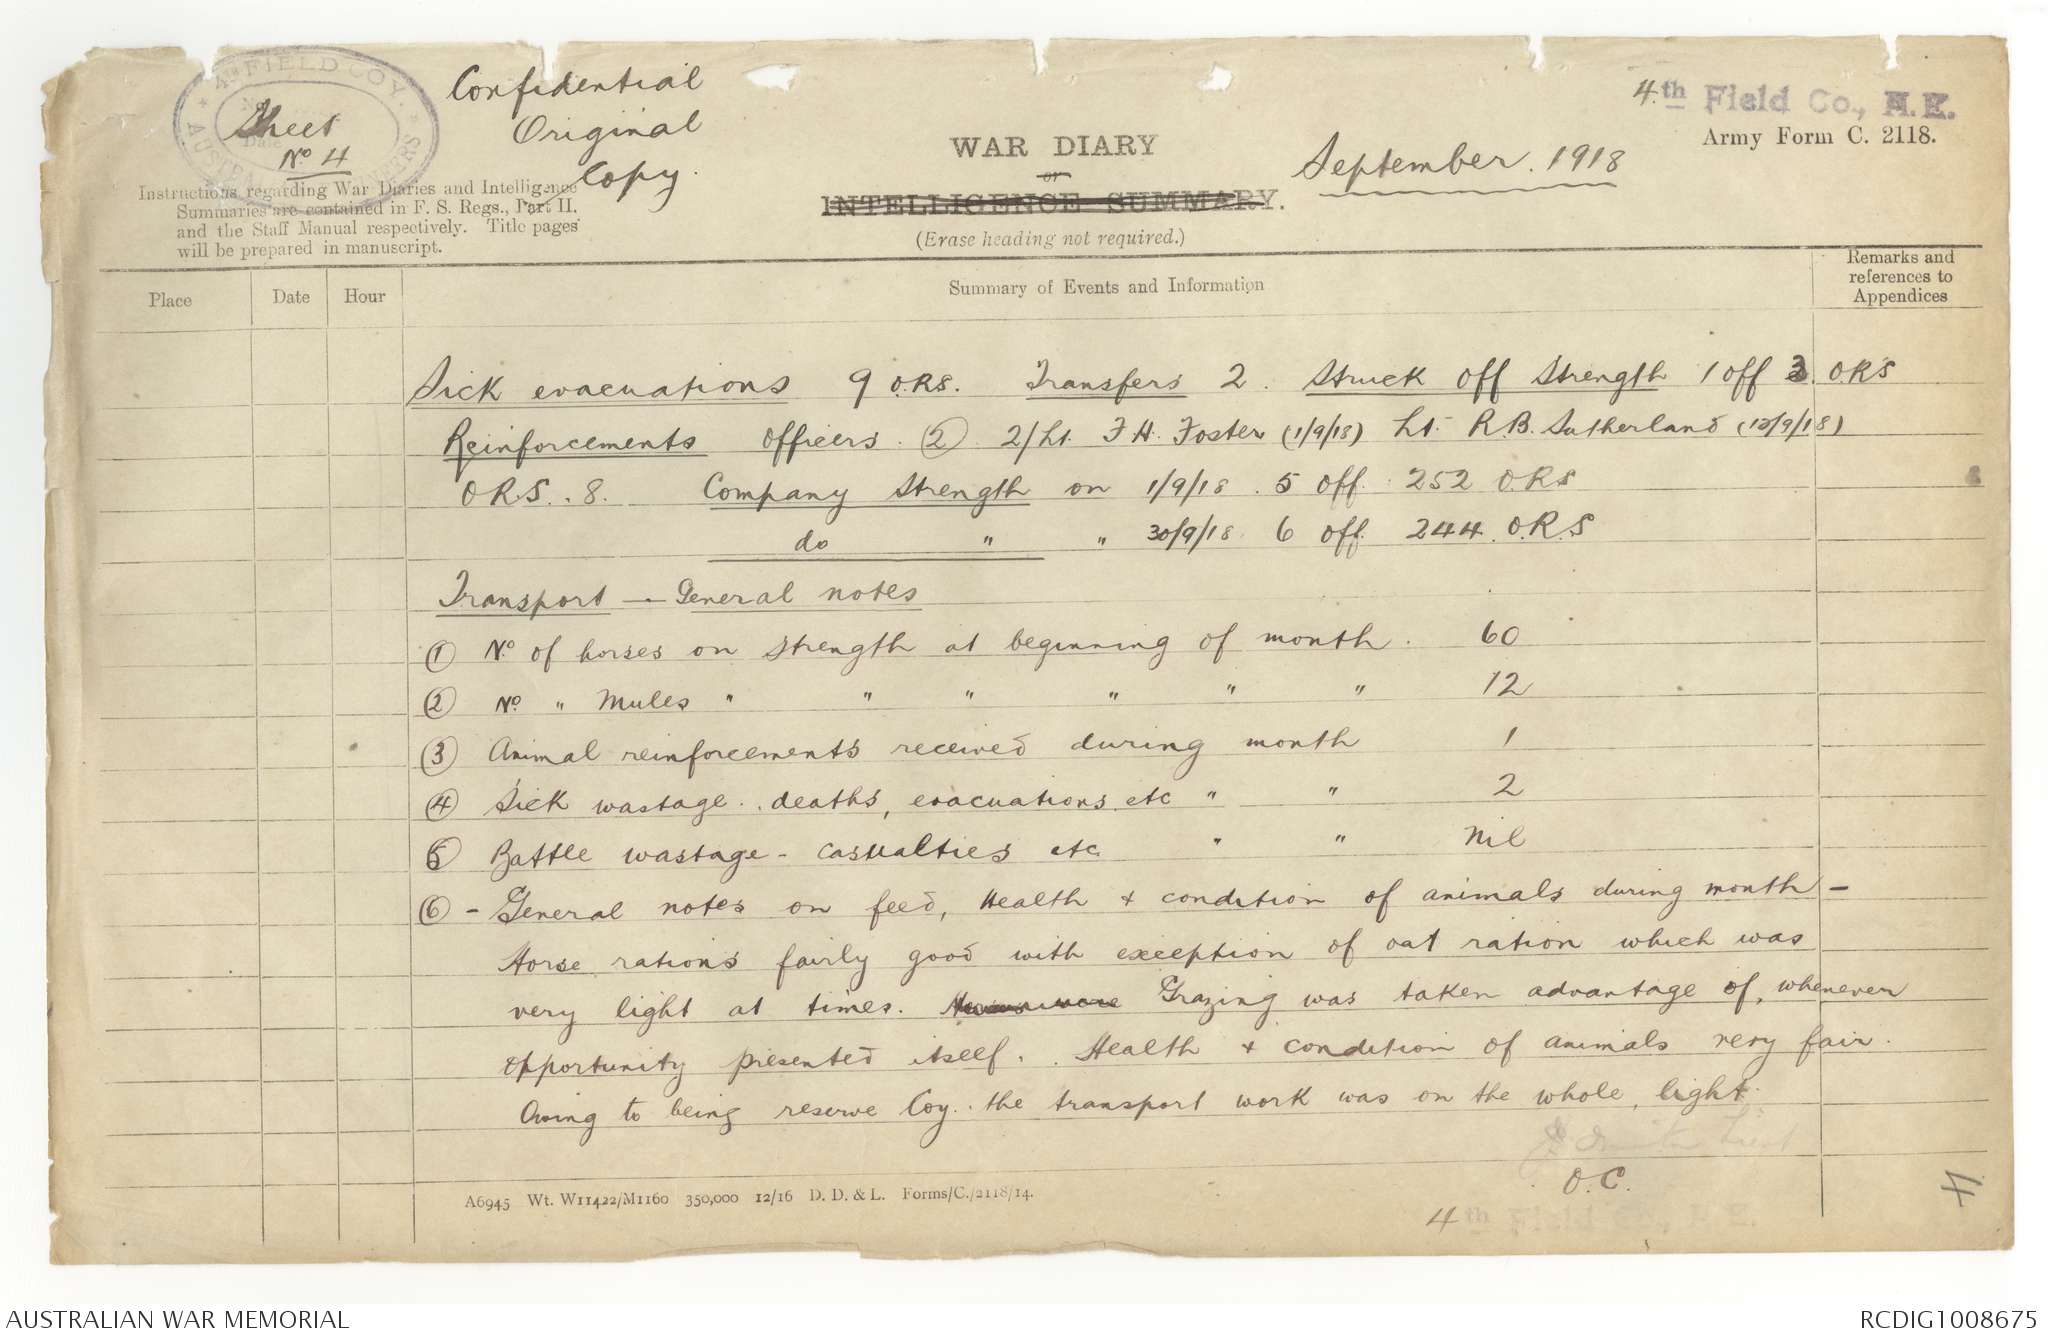 4th FIELD COY.
AUSTRALIAN ENGINEERS
No.
Date
Sheet
No 4
Confidential
Original
Copy.
4th Field Co., A.E.
Army Form C. 2118.
WAR DIARY
or
INTELLIGENCE SUMMARY.
(Erase heading not required.)
September. 1918
Instructions regarding War Diaries and Intelligence
Summaries are contained in F. S. Regs., Part II.
and the Staff Manual respectively. Title pages
will be prepared in manuscript.
Place Date Hour Summary of Events and Information Remarks and references to Appendices
Sick evacuations 9 O.R.S. Transfers 2. Struck off Strength 1 off 3. O.R'S
Reinforcements Officers. (2) 2/Lt. F.H. Foster (1/9/18) Lt. R.B. Sutherland (13/9/18)
O.R.S. 8. Company Strength on 1/9/18. 5 Off. 252 O.R.S
do " " 30/9/18. 6 Off. 244. O.R.S
Transport — General notes
(1) No of horses on strength at beginning of month. 60
(2) No " Mules " " " " " " 12
(3) Animal reinforcements received during month 1
(4) Sick wastage.. deaths, evacuations etc " " 2
(5) Battle wastage - casualties etc " " Nil
(6) - General notes on feed, Health & condition of animals during month -
Horse rations fairly good with exception of oat ration which was
very light at times. Grazing was taken advantage of, whenever
opportunity presented itself. Health & condition of animals very fair.
Owing to being reserve Coy. the transport work was on the whole, light.
Lieut
O.C.
4th Field Co., A.E.
A6945 Wt. W11422/M1160 350,000 12/16 D. D. & L. Forms/C./2118/14.
4
AUSTRALIAN WAR MEMORIAL
RCDIG1008675